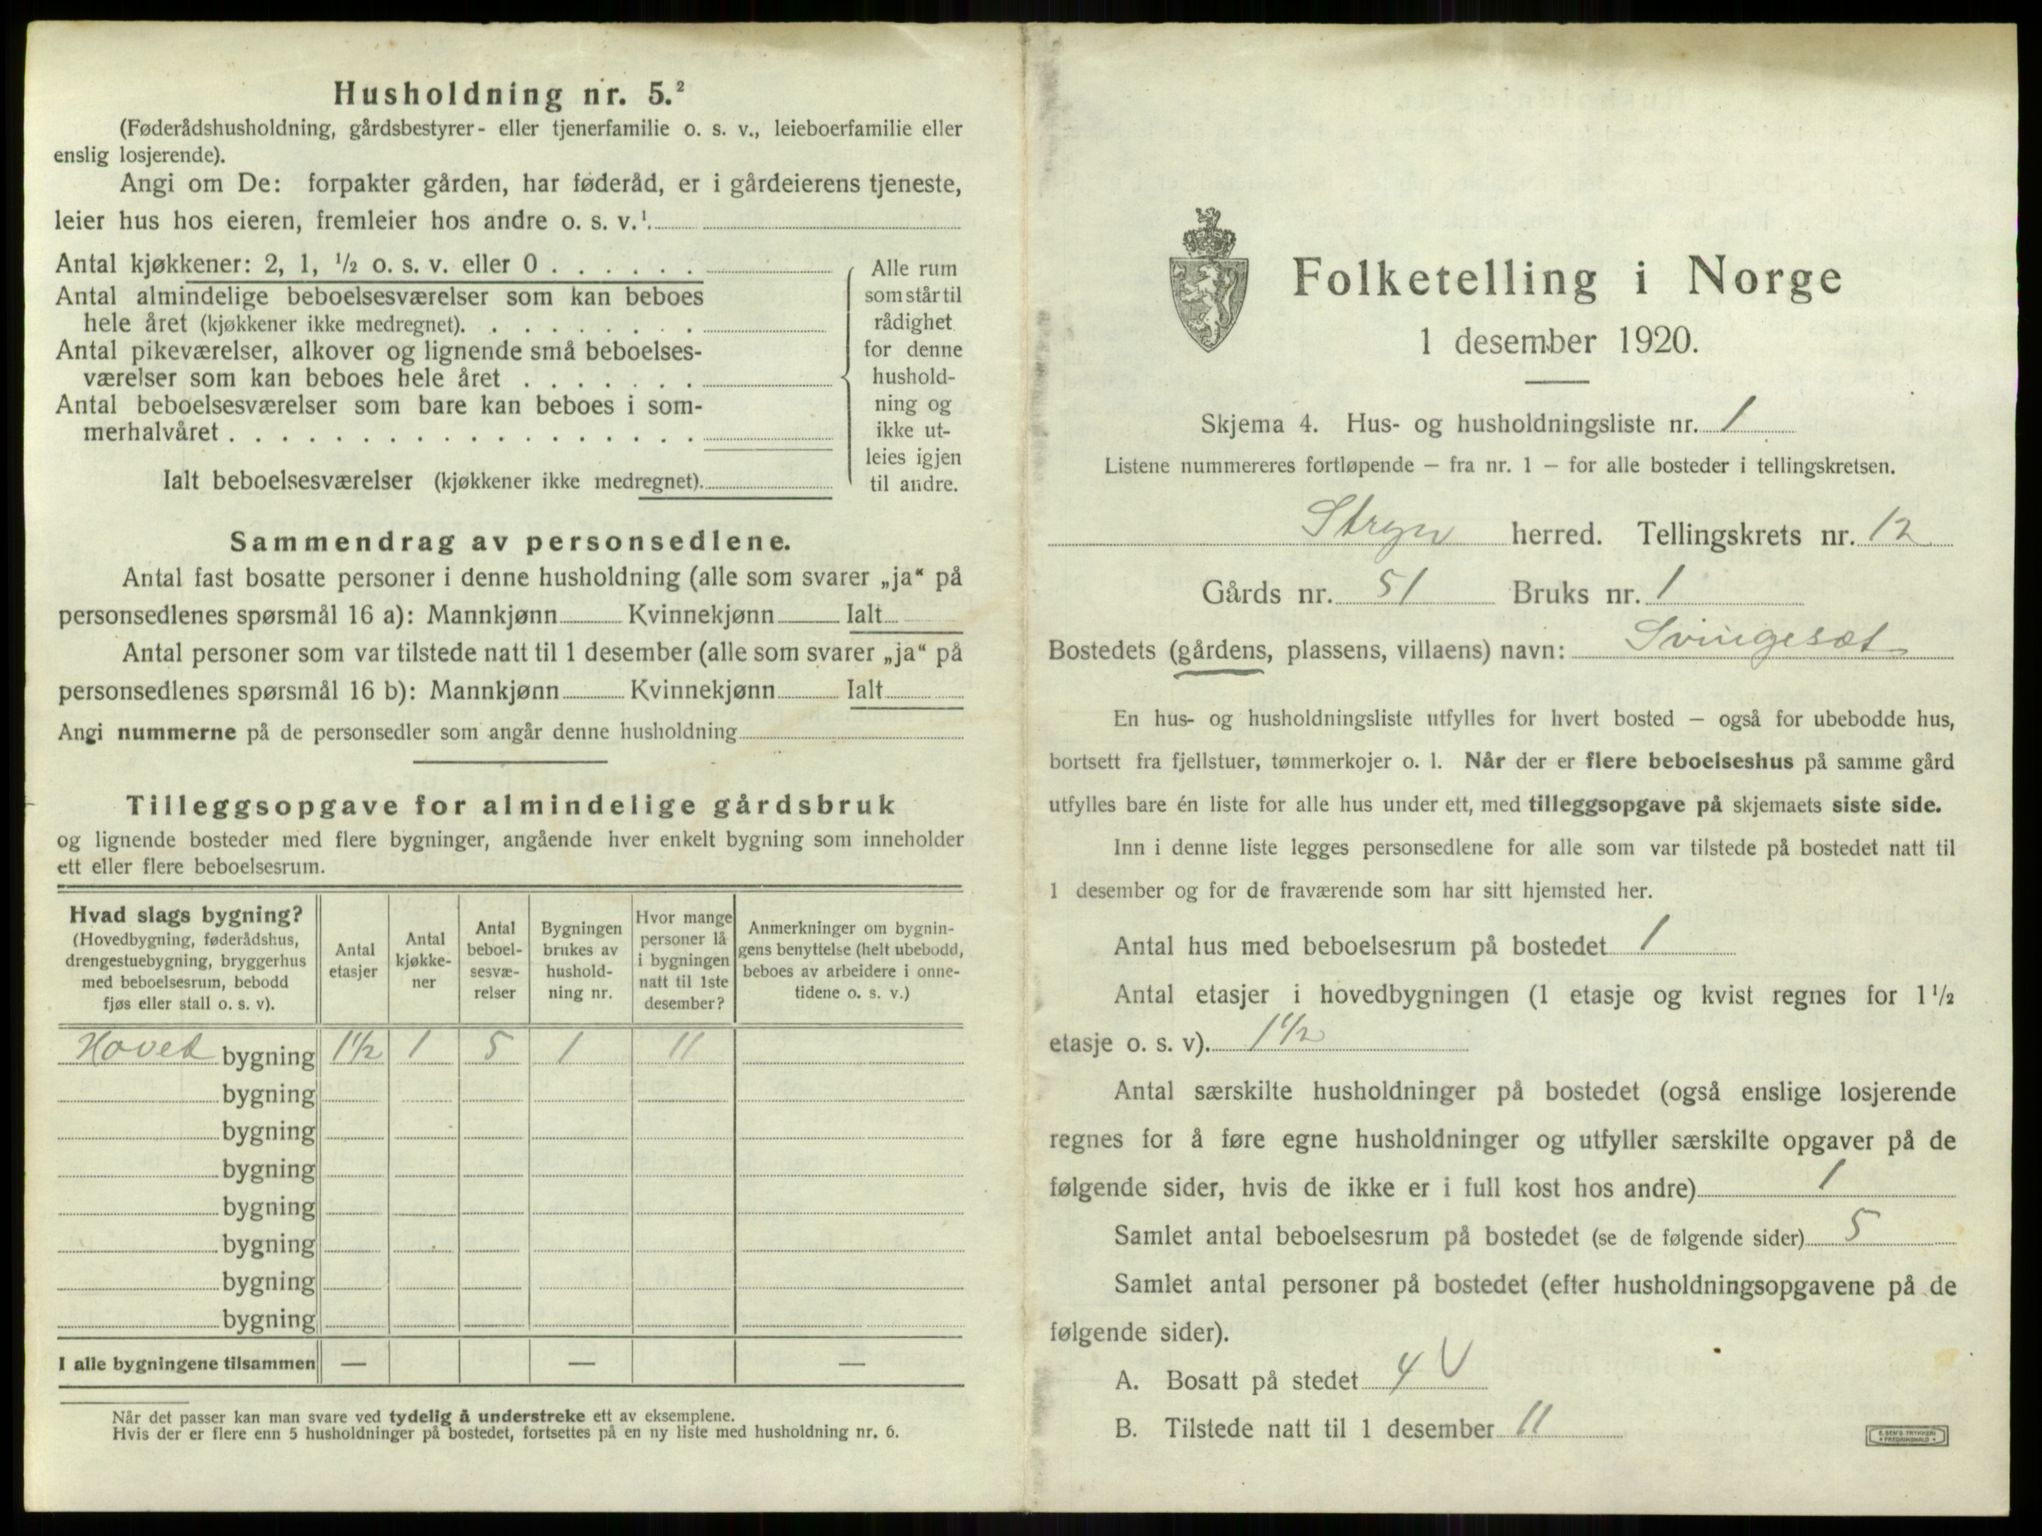 Husholdning nr. 5.²
(Føderådshusholdning, gårdsbestyrer- eller tjenerfamilie o. s. v., leieboerfamilie eller
enslig losjerende).
Angi om De: forpakter gården, har føderåd, er i gårdeierens tjeneste,
leier hus hos eieren, fremleier hos andre o. s. v.¹
Antal kjøkkener: 2, 1, ½ o. s. v. eller 0
Antal almindelige beboelsesværelser som kan beboes
hele året (kjøkkener ikke medregnet).
Antal pikeværelser, alkover og lignende små beboelses-
værelser som kan beboes hele året
Antal beboelsesværelser som bare kan beboes i som-
merhalvåret
Ialt beboelsesværelser (kjøkkener ikke medregnet).
Alle rum
som står til
rådighet
for denne
hushold-
ning og
ikke ut-
leies igjen
til andre.
Sammendrag av personsedlene.
Antal fast bosatte personer i denne husholdning (alle som svarer „ja“ på
personsedlenes spørsmål 16 a): Mannkjønn Kvinnekjønn Ialt
Antal personer som var tilstede natt til 1 desember (alle som svarer „ja“ på
personsedlenes spørsmål 16 b): Mannkjønn Kvinnekjønn Ialt
Angi nummerne på de personsedler som angår denne husholdning
Tilleggsopgave for almindelige gårdsbruk
og lignende bosteder med flere bygninger, angående hver enkelt bygning som inneholder
ett eller flere beboelsesrum.
Hvad slags bygning?
(Hovedbygning, føderådshus,
drengestuebygning, bryggerhus
med beboelsesrum, bebodd
fjøs eller stall o. s. v).
Antal
etasjer
Antal
kjøkke-
ner
Antal
beboel-
sesvæ-
relser
Bygningen
brukes av
hushold-
ning nr.
Hvor mange
personer lå
i bygningen
natt til 1ste
desember?
Anmerkninger om bygnin-
gens benyttelse (helt ubebodd,
beboes av arbeidere i onne-
tidene o. s. v.)
Hoved bygning 1½ 1 5 1 11
bygning
bygning
bygning
bygning
bygning
bygning
bygning
I alle bygningene tilsammen — — —
Når det passer kan man svare ved tydelig å understreke ett av eksemplene.
Hvis der er flere enn 5 husholdninger på bostedet, fortsettes på en ny liste med husholdning nr. 6.
Folketelling i Norge
1 desember 1920.
Skjema 4. Hus- og husholdningsliste nr. 1
Listene nummereres fortløpende – fra nr. 1 – for alle bosteder i tellingskretsen.
Stryn herred. Tellingskrets nr. 12
Gårds nr. 51 Bruks nr. 1
Bostedets (gårdens, plassens, villaens) navn: Svingesæt
En hus- og husholdningsliste utfylles for hvert bosted – også for ubebodde hus,
bortsett fra fjellstuer, tømmerkojer o. l. Når der er flere beboelseshus på samme gård
utfylles bare én liste for alle hus under ett, med tilleggsopgave på skjemaets siste side.
Inn i denne liste legges personsedlene for alle som var tilstede på bostedet natt til
1 desember og for de fraværende som har sitt hjemsted her.
Antal hus med beboelsesrum på bostedet 1
Antal etasjer i hovedbygningen (1 etasje og kvist regnes for 1½
etasje o. s. v). 1½
Antal særskilte husholdninger på bostedet (også enslige losjerende
regnes for å føre egne husholdninger og utfyller særskilte opgaver på de
følgende sider, hvis de ikke er i full kost hos andre) 1
Samlet antal beboelsesrum på bostedet (se de følgende sider) 5
Samlet antal personer på bostedet (efter husholdningsopgavene på de
følgende sider).
A. Bosatt på stedet 4 V
B. Tilstede natt til 1 desember 11